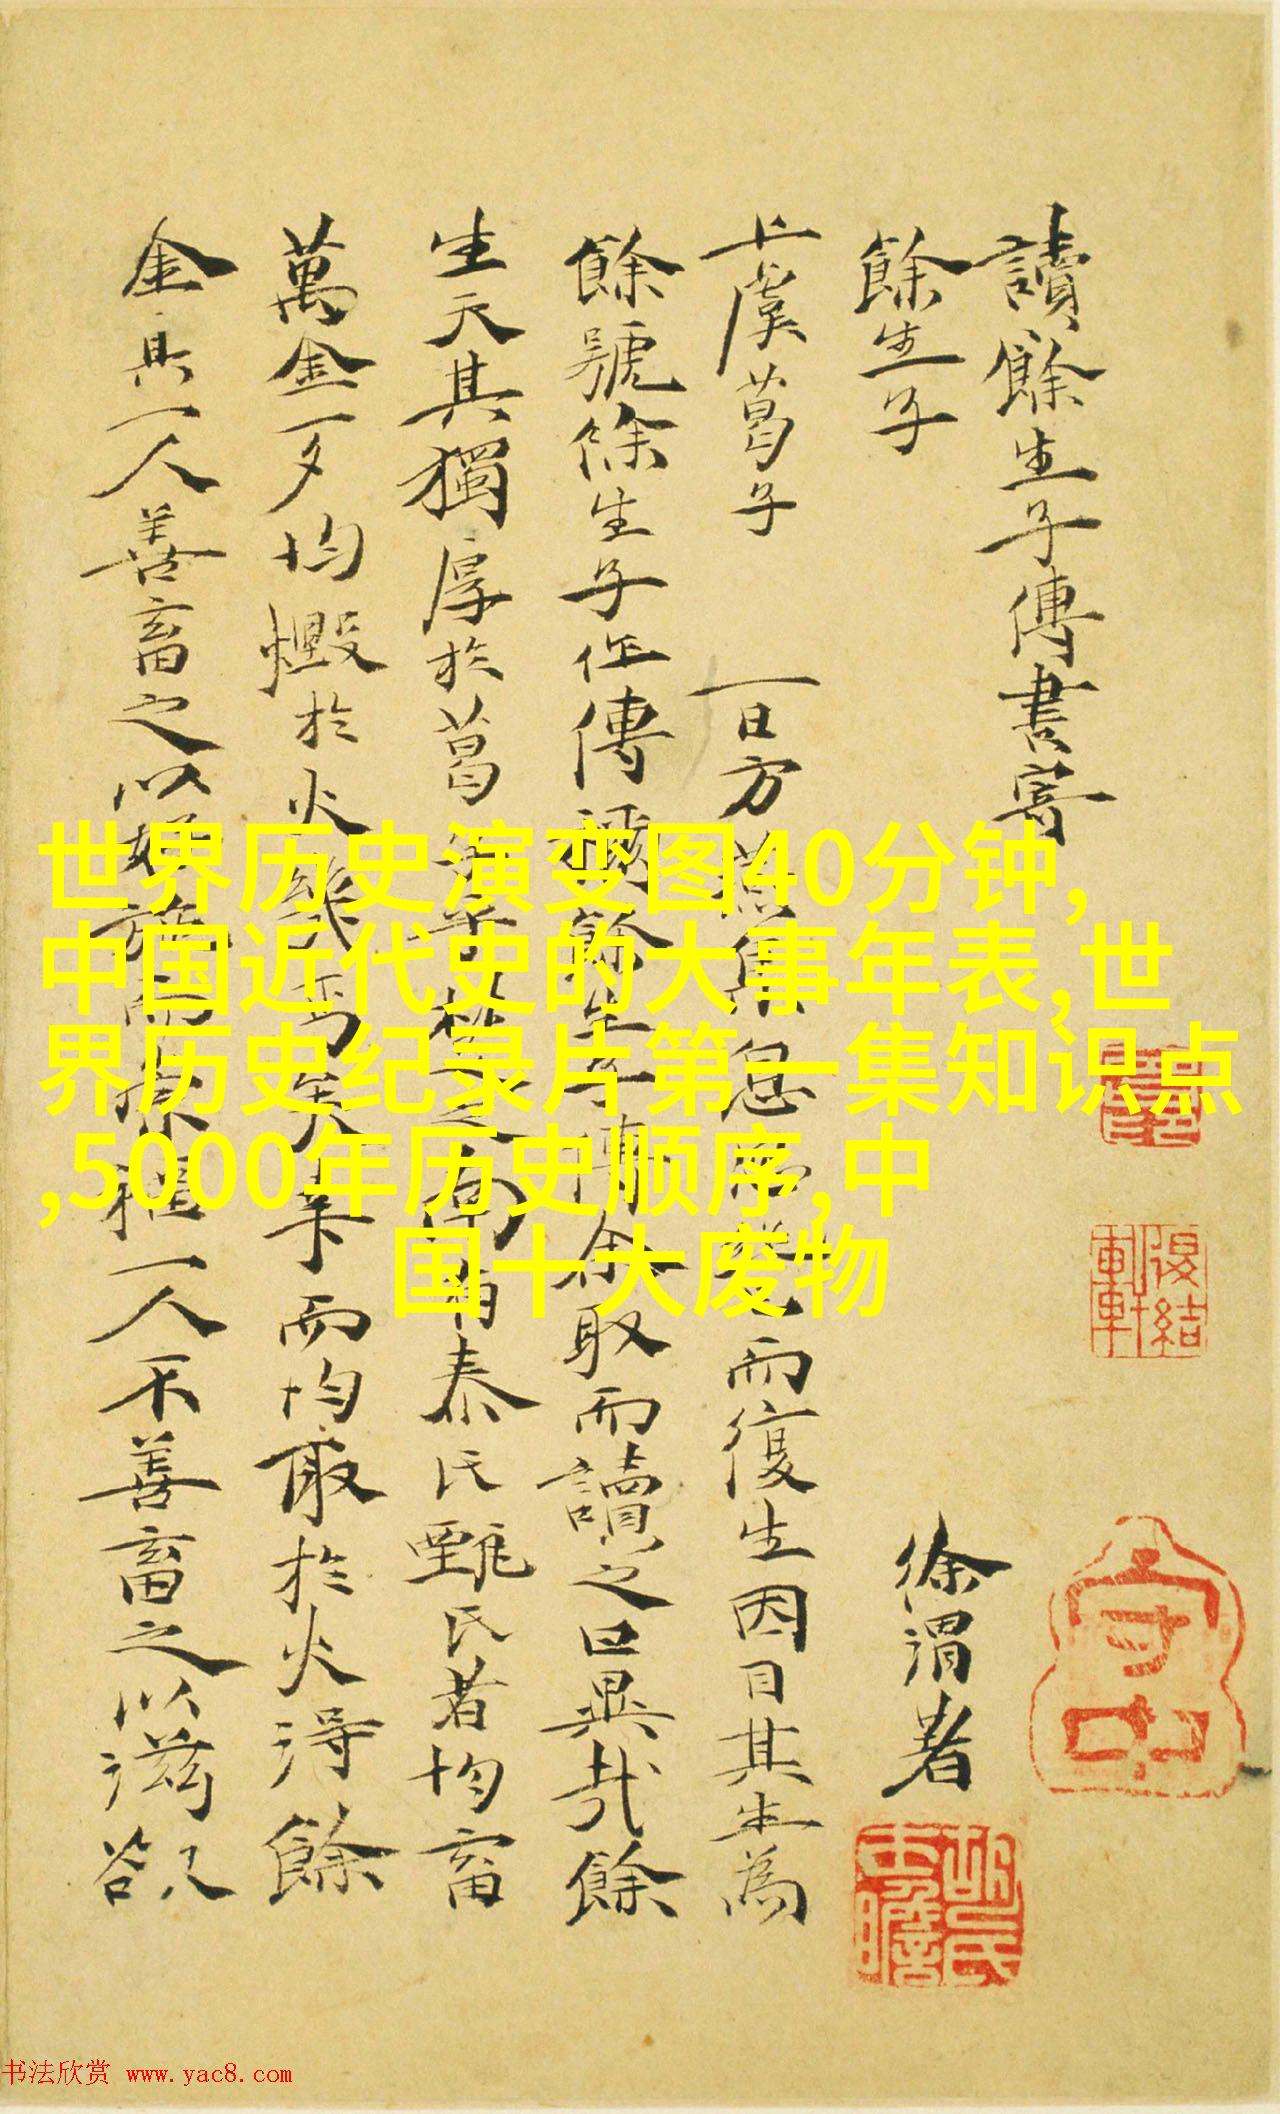 讀餘生子傳書寄
餘生子
徐渭著
上虞葛子 一日方息而復生因目其生為
餘號餘生子作傳餘生子傳余取而讀之曰異哉餘
生天其獨厚於葛有泰氏甄氏者均畜
萬金一夕均燬於火而均取於火得餘
金其一人善畜之以好施而一人不善畜之以滋欲
守中
世界历史演变图40分钟,
中国近代史的大事年表,世
界历史纪录片第一集知识点
,5000年历史顺序,中
国十大废物
书法欣赏 www.yac8.com